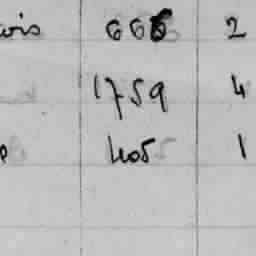 ois 666 2
1759 4
405 1